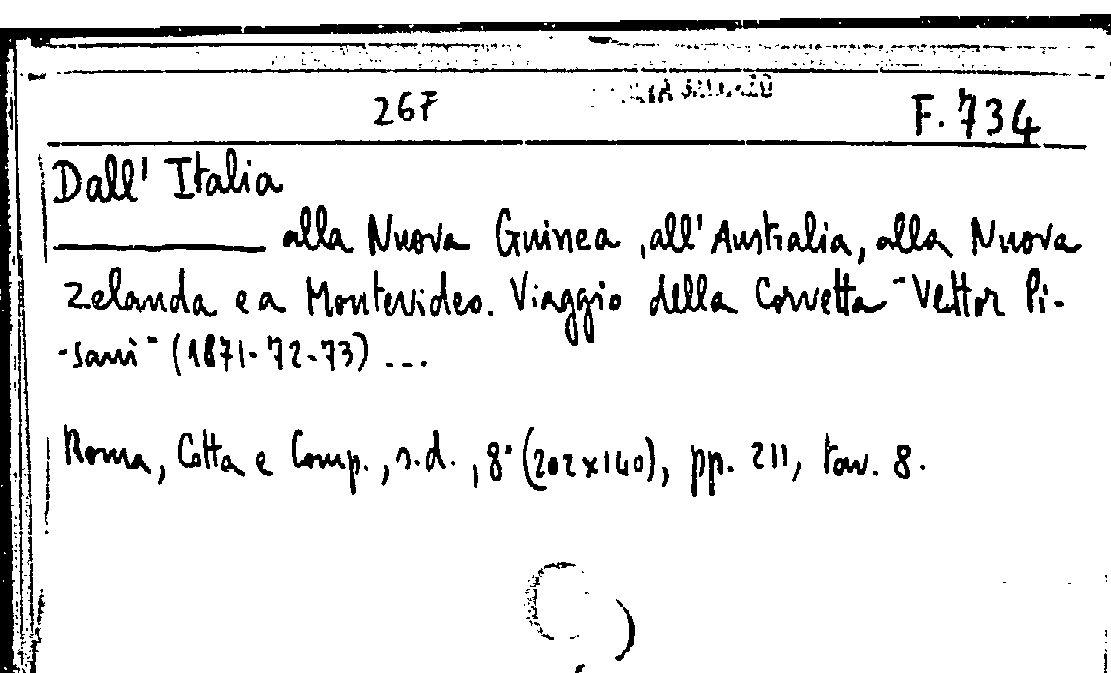 267 F. 734
Dall' Italia
alla Nuova Guinea, all' Australia, alla Nuova
Zelanda e a Montevideo. Viaggio della Corvetta "Vettor Pi-
-sani" (1871-72-73) ...
Roma, Cotta e Comp., s.d., 8° (202x140), pp. 211, tav. 8.